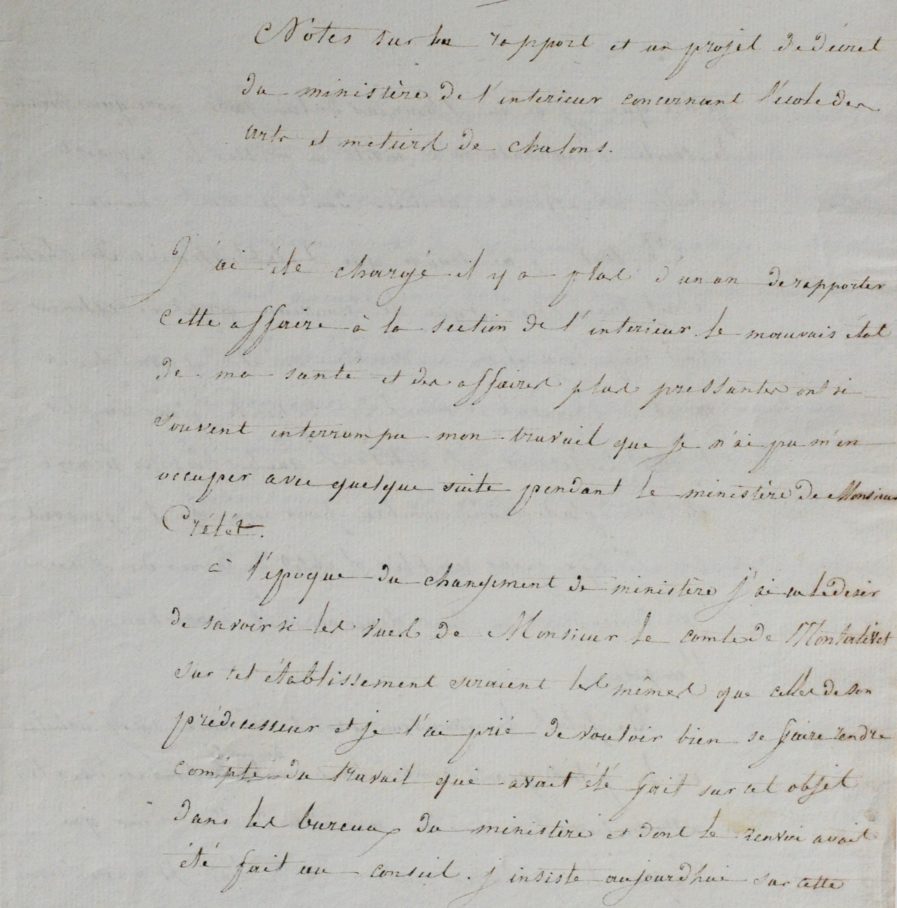 Notes sur un rapport et un projet de décret
du ministère de l'interieur concernant l'école des
arts et metiers de chalons.
J'ai été chargé il y a plus d'un an de rapporter
cette affaire à la section de l'interieur. le mauvais état
de ma santé et des affaires plus pressantes ont si
souvent interrompu mon travail que je n'ai pu m'en
occuper avec quelque suite pendant le ministère de Monsieur
Crétêt.
à l'époque du changement de ministère j'ai eu le desir
de savoir si les vues de Monsieur le comte de Montalivet
sur cet établissement seraient les mêmes que celles de son
prédecesseur et je l'ai prié de vouloir bien se faire rendre
compte du travail qui avait été fait sur cet objet
dans les bureaux du ministère et dont le renvoi avait
été fait au conseil. j'insiste aujourdhui sur cette